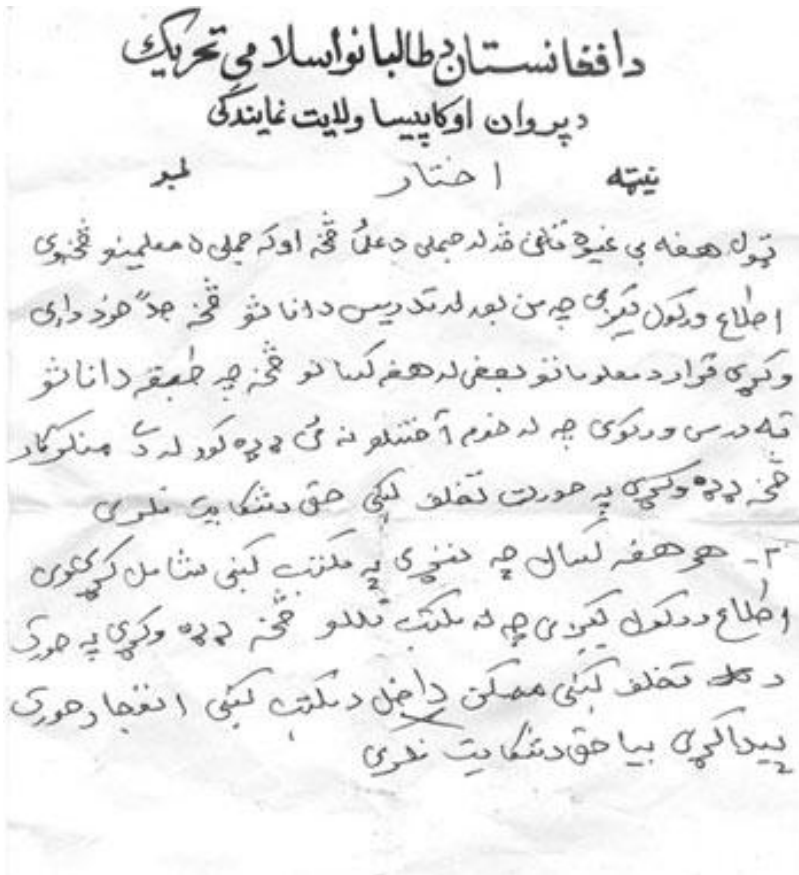 د افغانستان د طالبانو اسلامي تحريک
د پروان او کاپيسا ولايت نمايندگی
نيټه اختار لمبر
ټول هغه بی غيره څخه او که د معلمينو څخه وی
اطلاع ورکول کيږی چه من بعد له تدريس د اناثو څخه جداً خود داری
وکړی قرار د معلوماتو بعضی له هغه کسانو څخه چه طبقه د اناثو
ته درس ورکوی چه له خوا نه ئی ډډه کوو له دی منکر کار
څخه ډډه وکړی په صورت تخلف کی حق د شکايت نلری
۲- هر هغه کسان چه ښځی په مکتب کښی شامل کړی وی
اطلاع ورکول کيږی چه له مکتب تللو څخه ډډه وکړی په صورت
د تخلف کښی ممکن داخل د مکتب کښی انفجار صورت
پيدا کړی بيا حق د شکايت نلری